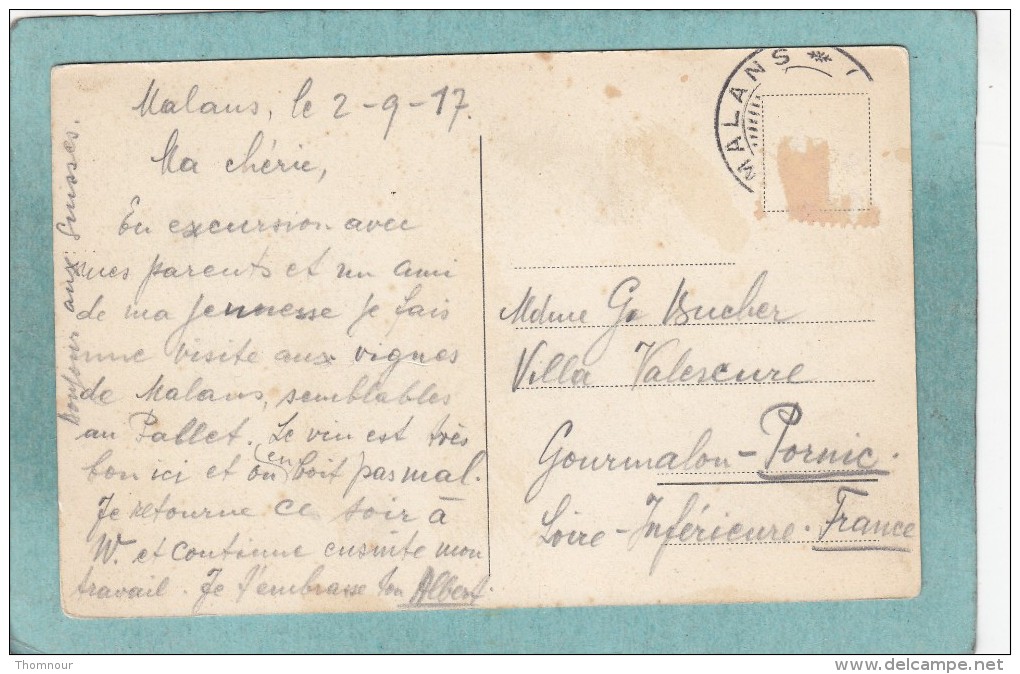 Malans, le 2-9-17.
Ma chérie,
En excursion avec
mes parents et un ami
de ma jeunesse je fais
une visite aux vignes
de Malans, semblables
au Pallet. Le vin est très
bon ici et on en boit pas mal.
Je retourne ce soir à
W. et continue ensuite mon
travail. Je t'embrasse ton Albert.
Bonjour aux Suisses.
MALANS
Mdme G. Bucher
Villa Valescure
Gourmalon-Pornic.
Loire-Inférieure. France
Thomnour
delcampe.net